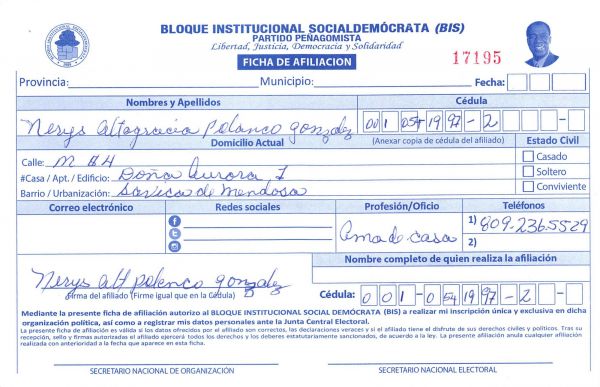 BLOQUE INSTITUCIONAL SOCIALDEMÓCRATA (BIS)
PARTIDO PEÑAGOMISTA
Libertad, Justicia, Democracia y Solidaridad
FICHA DE AFILIACION
17195
Provincia: Municipio: Fecha:
Nombres y Apellidos Cédula
Nerys Altagracia Polanco gonzalez 001 054 1997-2
Domicilio Actual (Anexar copia de cédula del afiliado) Estado Civil
Calle: M #4 Casado
#Casa / Apt. / Edificio: Doña Aurora I Soltero
Barrio / Urbanización: Savica de Mendosa Conviviente
Correo electrónico Redes sociales Profesión/Oficio Teléfonos
Ama de casa 1) 809-236-5529
2)
Nombre completo de quien realiza la afiliación
Nerys Alt polanco gonzalez
Firma del afiliado (Firme igual que en la Cédula) Cédula: 001-054 1997-2-
Mediante la presente ficha de afiliación autorizo al BLOQUE INSTITUCIONAL SOCIAL DEMÓCRATA (BIS) a realizar mi inscripción única y exclusiva en dicha
organización política, así como a registrar mis datos personales ante la Junta Central Electoral.
La presente ficha de afiliación es válida si los datos ofrecidos por el afiliado son correctos, las declaraciones veraces y si el afiliado tiene el disfrute de sus derechos civiles y políticos. Tras su
recepción, sello y firmas autorizadas el afiliado ejercerá todos los derechos y los deberes estatutariamente sancionados, de acuerdo a la ley. La presente afiliación anula cualquier afiliación
realizada con anterioridad a la fecha que aparece en esta ficha.
SECRETARIO NACIONAL DE ORGANIZACIÓN SECRETARIO NACIONAL ELECTORAL